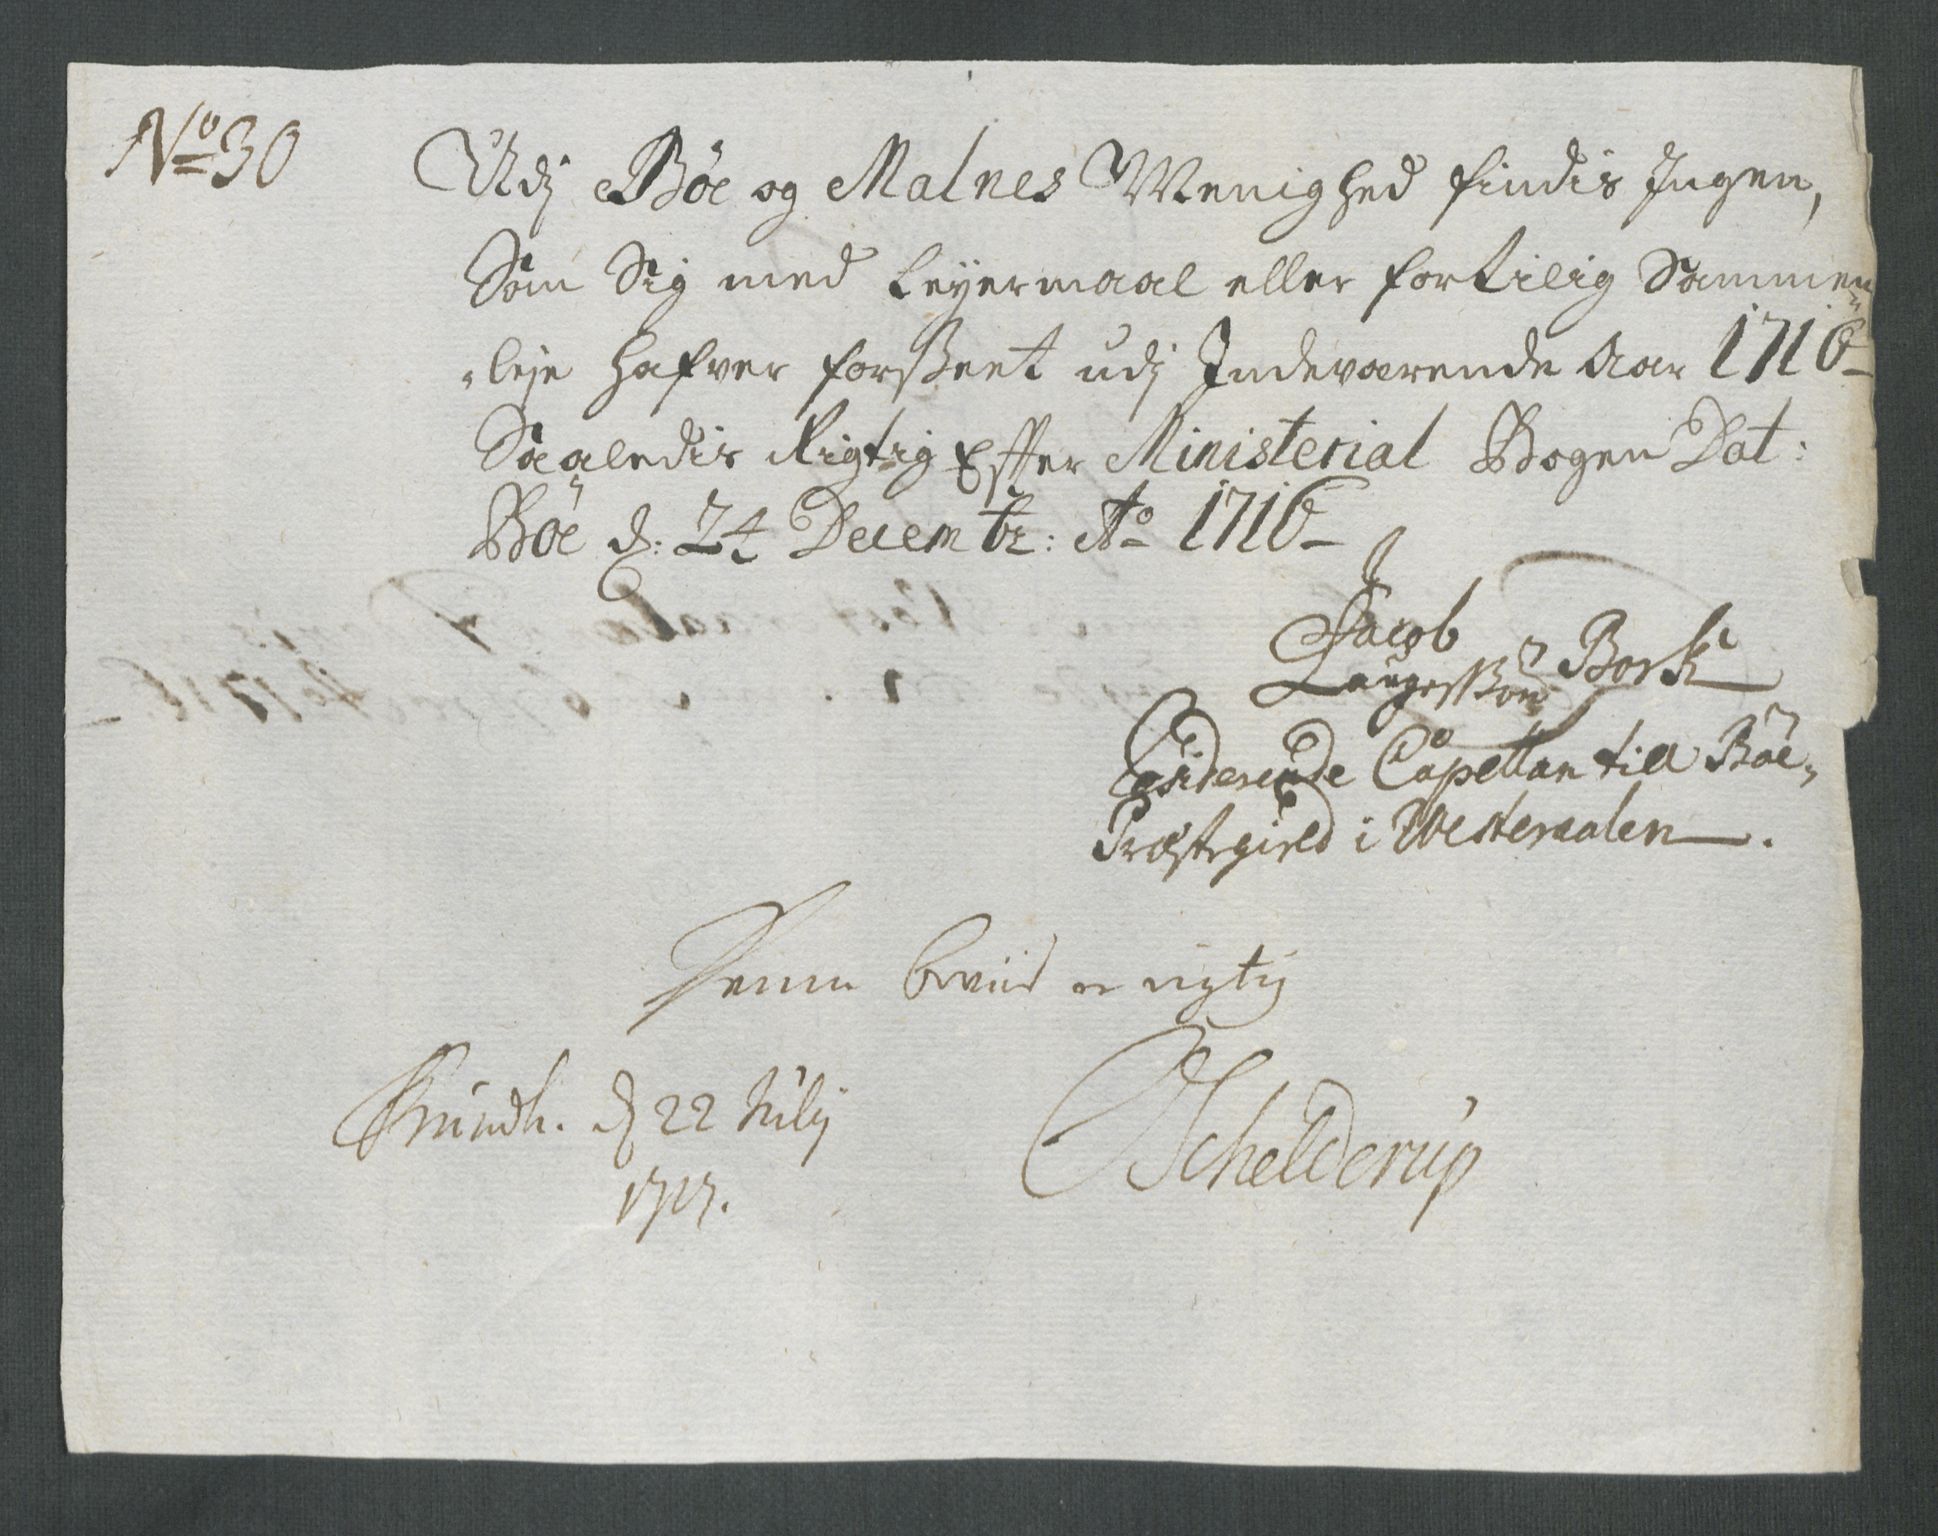 No 30
Udj Böe og Malnes Menighed findis Ingen,
Som Sig med Leyermaal eller for tilig Sammen
leje hafver forsseet udj Indeværende Aar 1716
Saaledis Rigtig Effter Ministerial Bogen Dat:
Böe d: 24 Decembr: Ao 1716
Jacob
Laugessön Bork
Residerende Capellan till Böe
Præstegield i Westeraalen.
Denne beviis er rigtig
Trundh. d 22 Julij
1717.
Schelderup